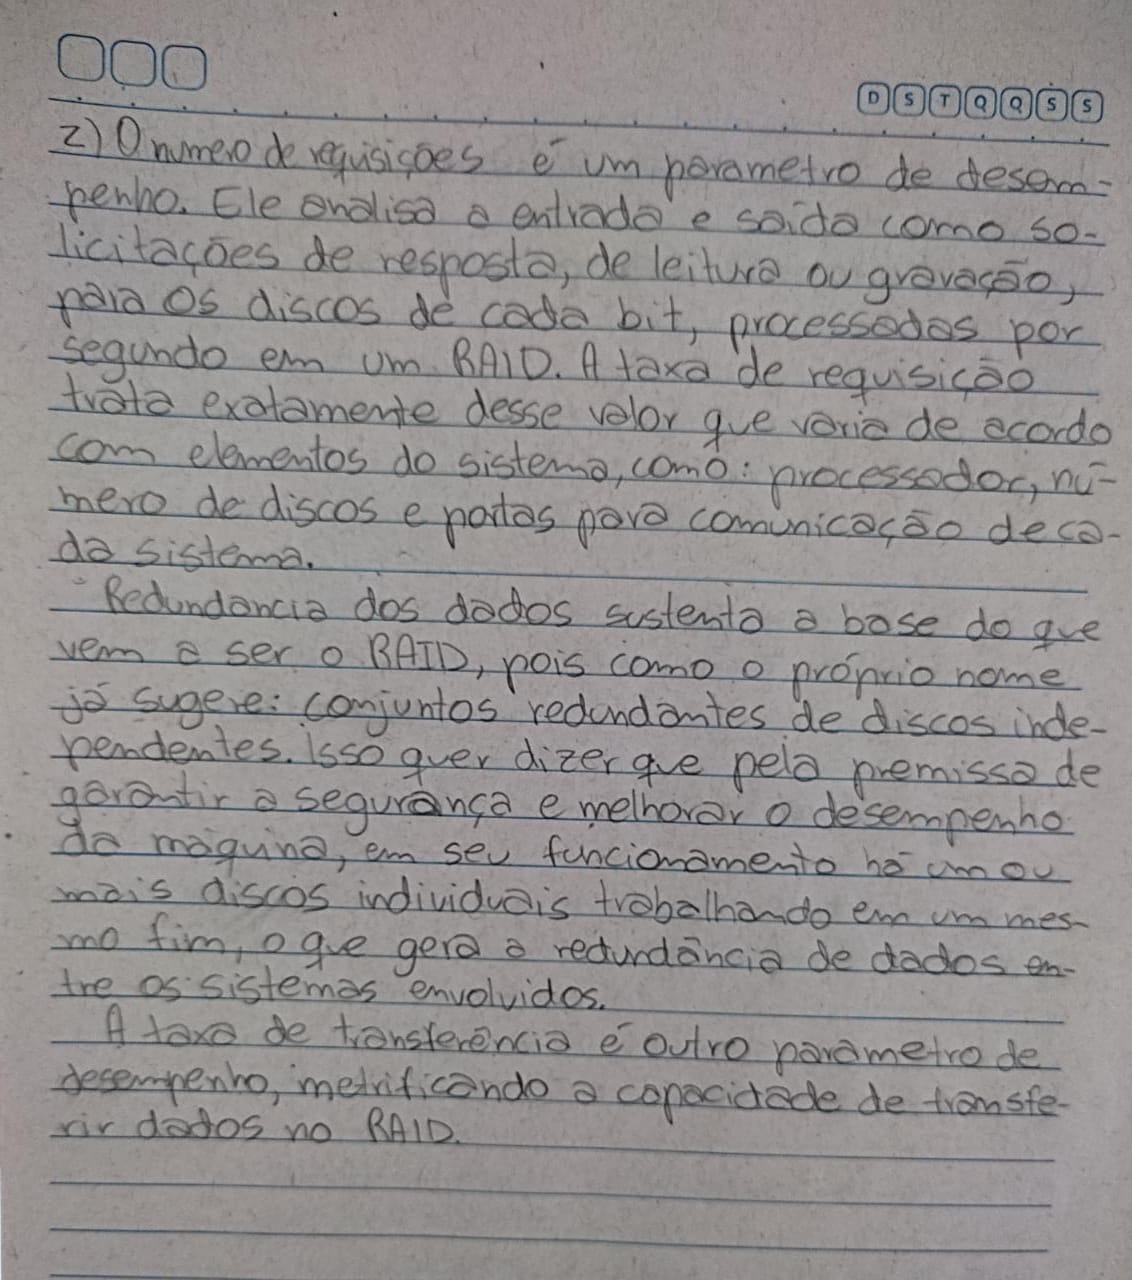 D S T Q Q S S
2) O numero de requisições é um parametro de desem-
penho. Ele analisa a entrada e saída como so-
licitações de resposta, de leitura ou gravação,
para os discos de cada bit, processadas por
segundo em um RAID. A taxa de requisição
trata exatamente desse valor que varia de acordo
com elementos do sistema, como: processador, nú-
mero de discos e portas para comunicação de ca-
da sistema.
Redundancia dos dados sustenta a base do que
vem a ser o RAID, pois como o próprio nome
já sugere: conjuntos redundantes de discos inde-
pendentes. Isso quer dizer que pela premissa de
garantir a segurança e melhorar o desempenho
da máquina, em seu funcionamento há um ou
mais discos individuais trabalhando em um mes-
mo fim, o que gera a redundância de dados en-
tre os sistemas envolvidos.
A taxa de transferência é outro parametro de
desempenho, metrificando a capacidade de transfe-
rir dados no RAID.